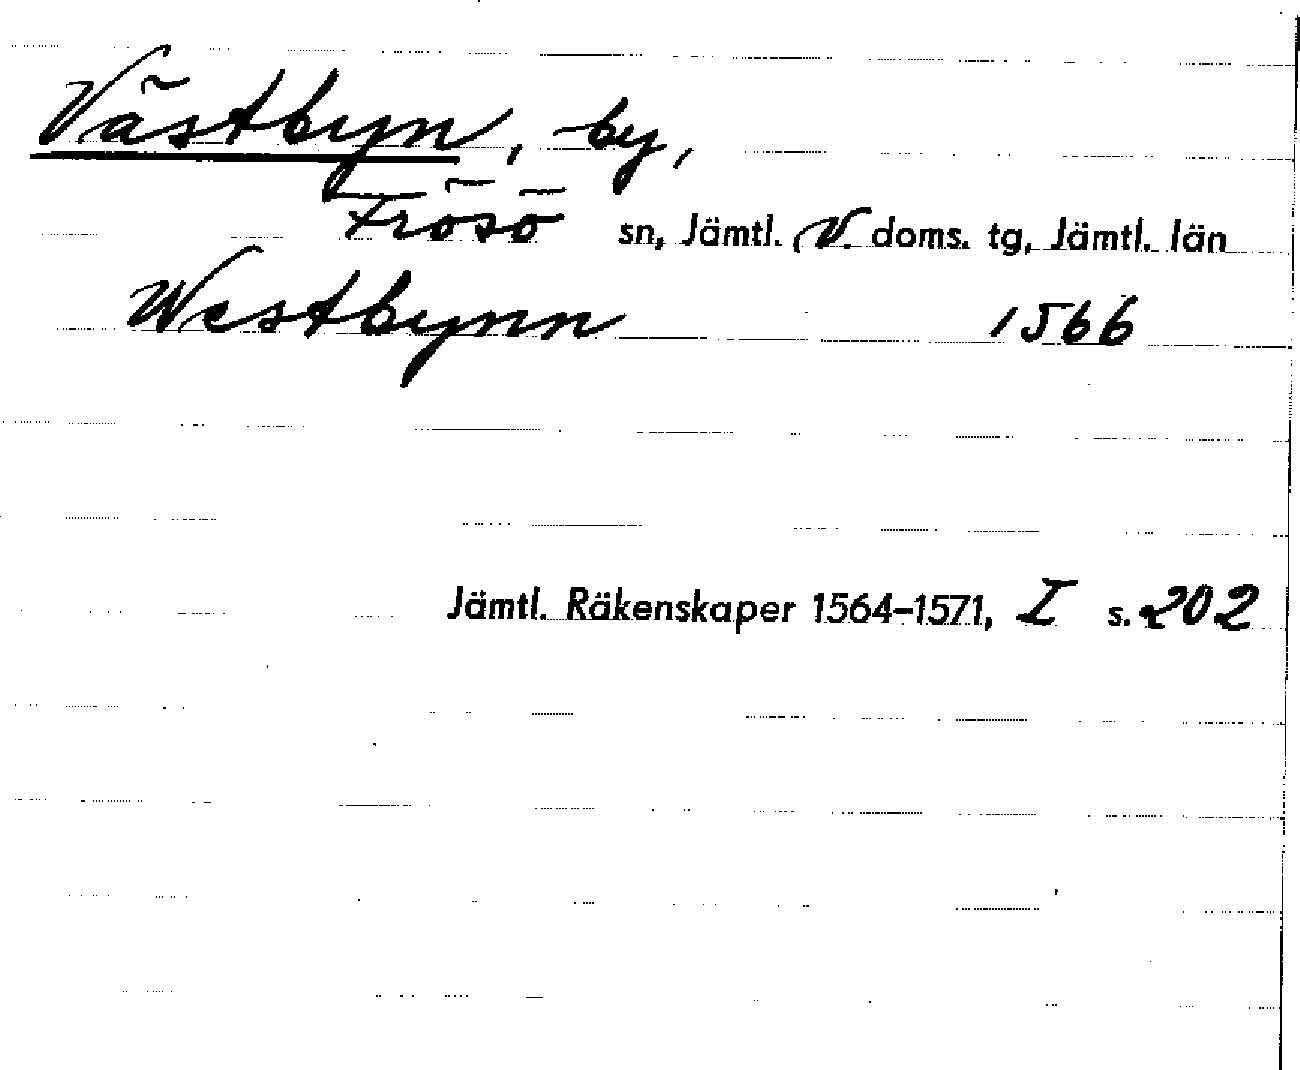 Västbyn, by,
Frösö sn, Jämtl. V. doms. tg, Jämtl. län
Westbynn 1566
Jämtl. Räkenskaper 1564-1571, I s. 202